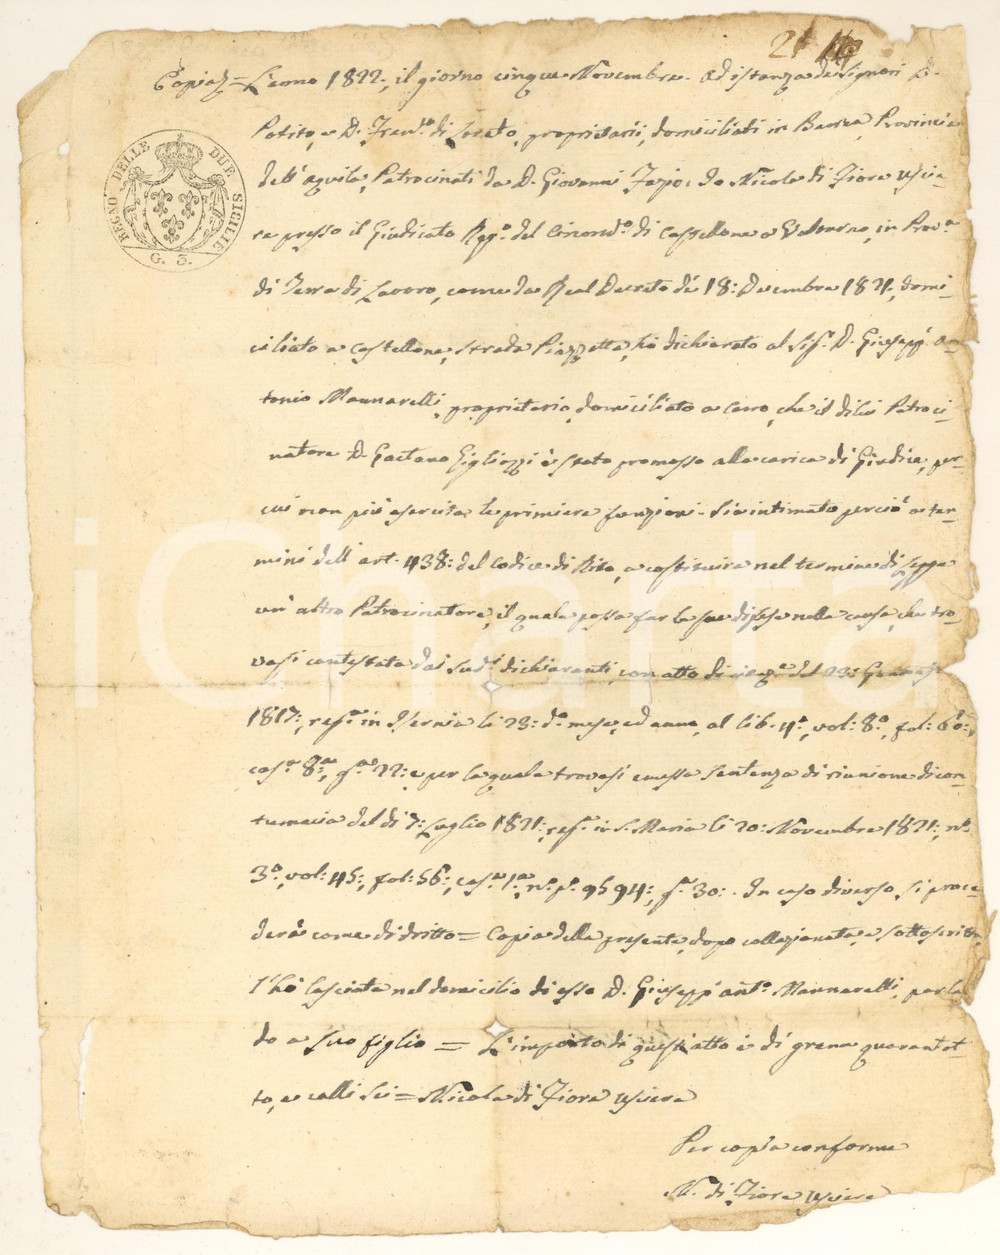 21
Copia = L'anno 1822, il giorno cinque Novembre. Ad istanza de' Signori D.
Potito, e D. Fran.co di Loreto, proprietarii, domiciliati in Barrea, Provincia
dell'Aquila, Patrocinati da D. Giovanni Fazio, Io Nicola di Fiore uscie-
re presso il Giudicato Reg.o del Circond.o di Castellone a Volturno, in Prov.a
di Terra di Lavoro, come da Real Decreto de' 18: Decembre 1821, domi-
ciliato a Castellone, strada Piazzetta, ho dichiarato al Sig.r D. Giusepp' An-
tonio Mannarelli, proprietario, domiciliato a Cerro, che il di lui Patroci-
natore D. Gaetano Gigliozzi è stato promosso alla carica di Giudice, per
cui non più esercita le primiere funzioni. S'è intimato perciò a ter-
mini dell'art. 438: del Codice di Rito, a costituire nel termine di Legge
un'altro Patrocinatore, il quale possa far le sue difese nella causa, che tro-
vasi contestata dai sud.i dichiaranti, con atto di del 23: Gennajo
1817:, reg.o in Isernia li 23: d.o mese, ed anno, al lib. 4.o, vol: 8.o, fol: 60:,
cas.a 8.a, g.a 22: e per la quale trovasi emessa sentenza di riunione di con-
tumacia del dì 7: Luglio 1821:, reg.a in S. Maria li 20: Novembre 1821:, n.o
3.o, vol: 45:, fol: 56:, cas.a 1.a, n.o p.o 9594:, g.a 30:. In caso diverso, si proce-
derà come di dritto = Copia della presente, dopo collazionata, e sottoscritta,
l'ho lasciata nel domicilio di esso D. Giusepp'Ant.o Mannarelli, parlan
do a suo figlio = L'importo di quest'atto è di grana quarantot-
to, e calli sei = Nicola di Fiore usciere
Per copia conforme
N. di Fiore usciere
REGNO DELLE DUE SICILIE
G. 3.
iCharta